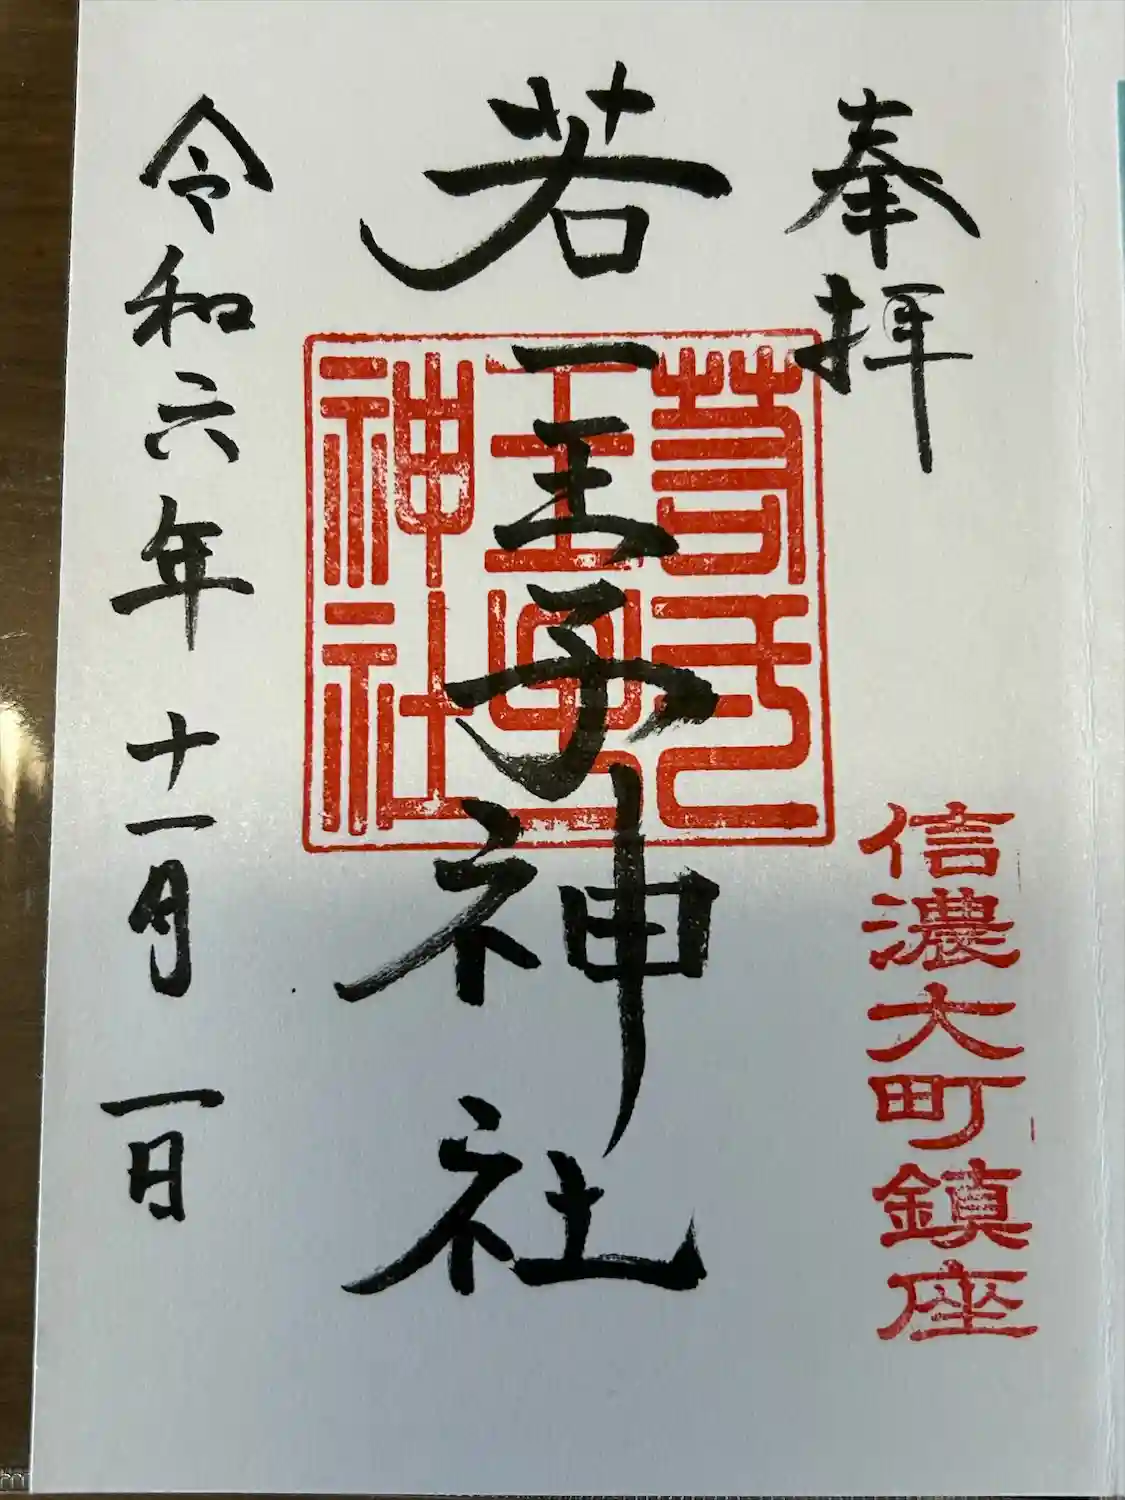 奉拝
信濃大町鎮座
若一王子神社
若一
王子
神社
令和六年十一月一日